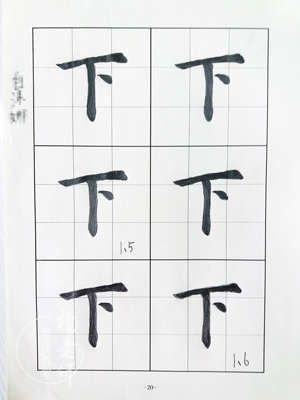 下 下
下 下
1.5
下 下
1.6
-20-